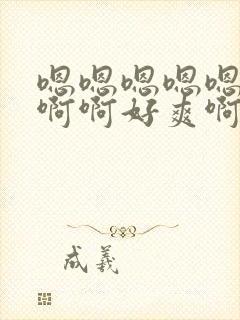 嗯嗯嗯嗯嗯
啊啊好爽啊
成羲